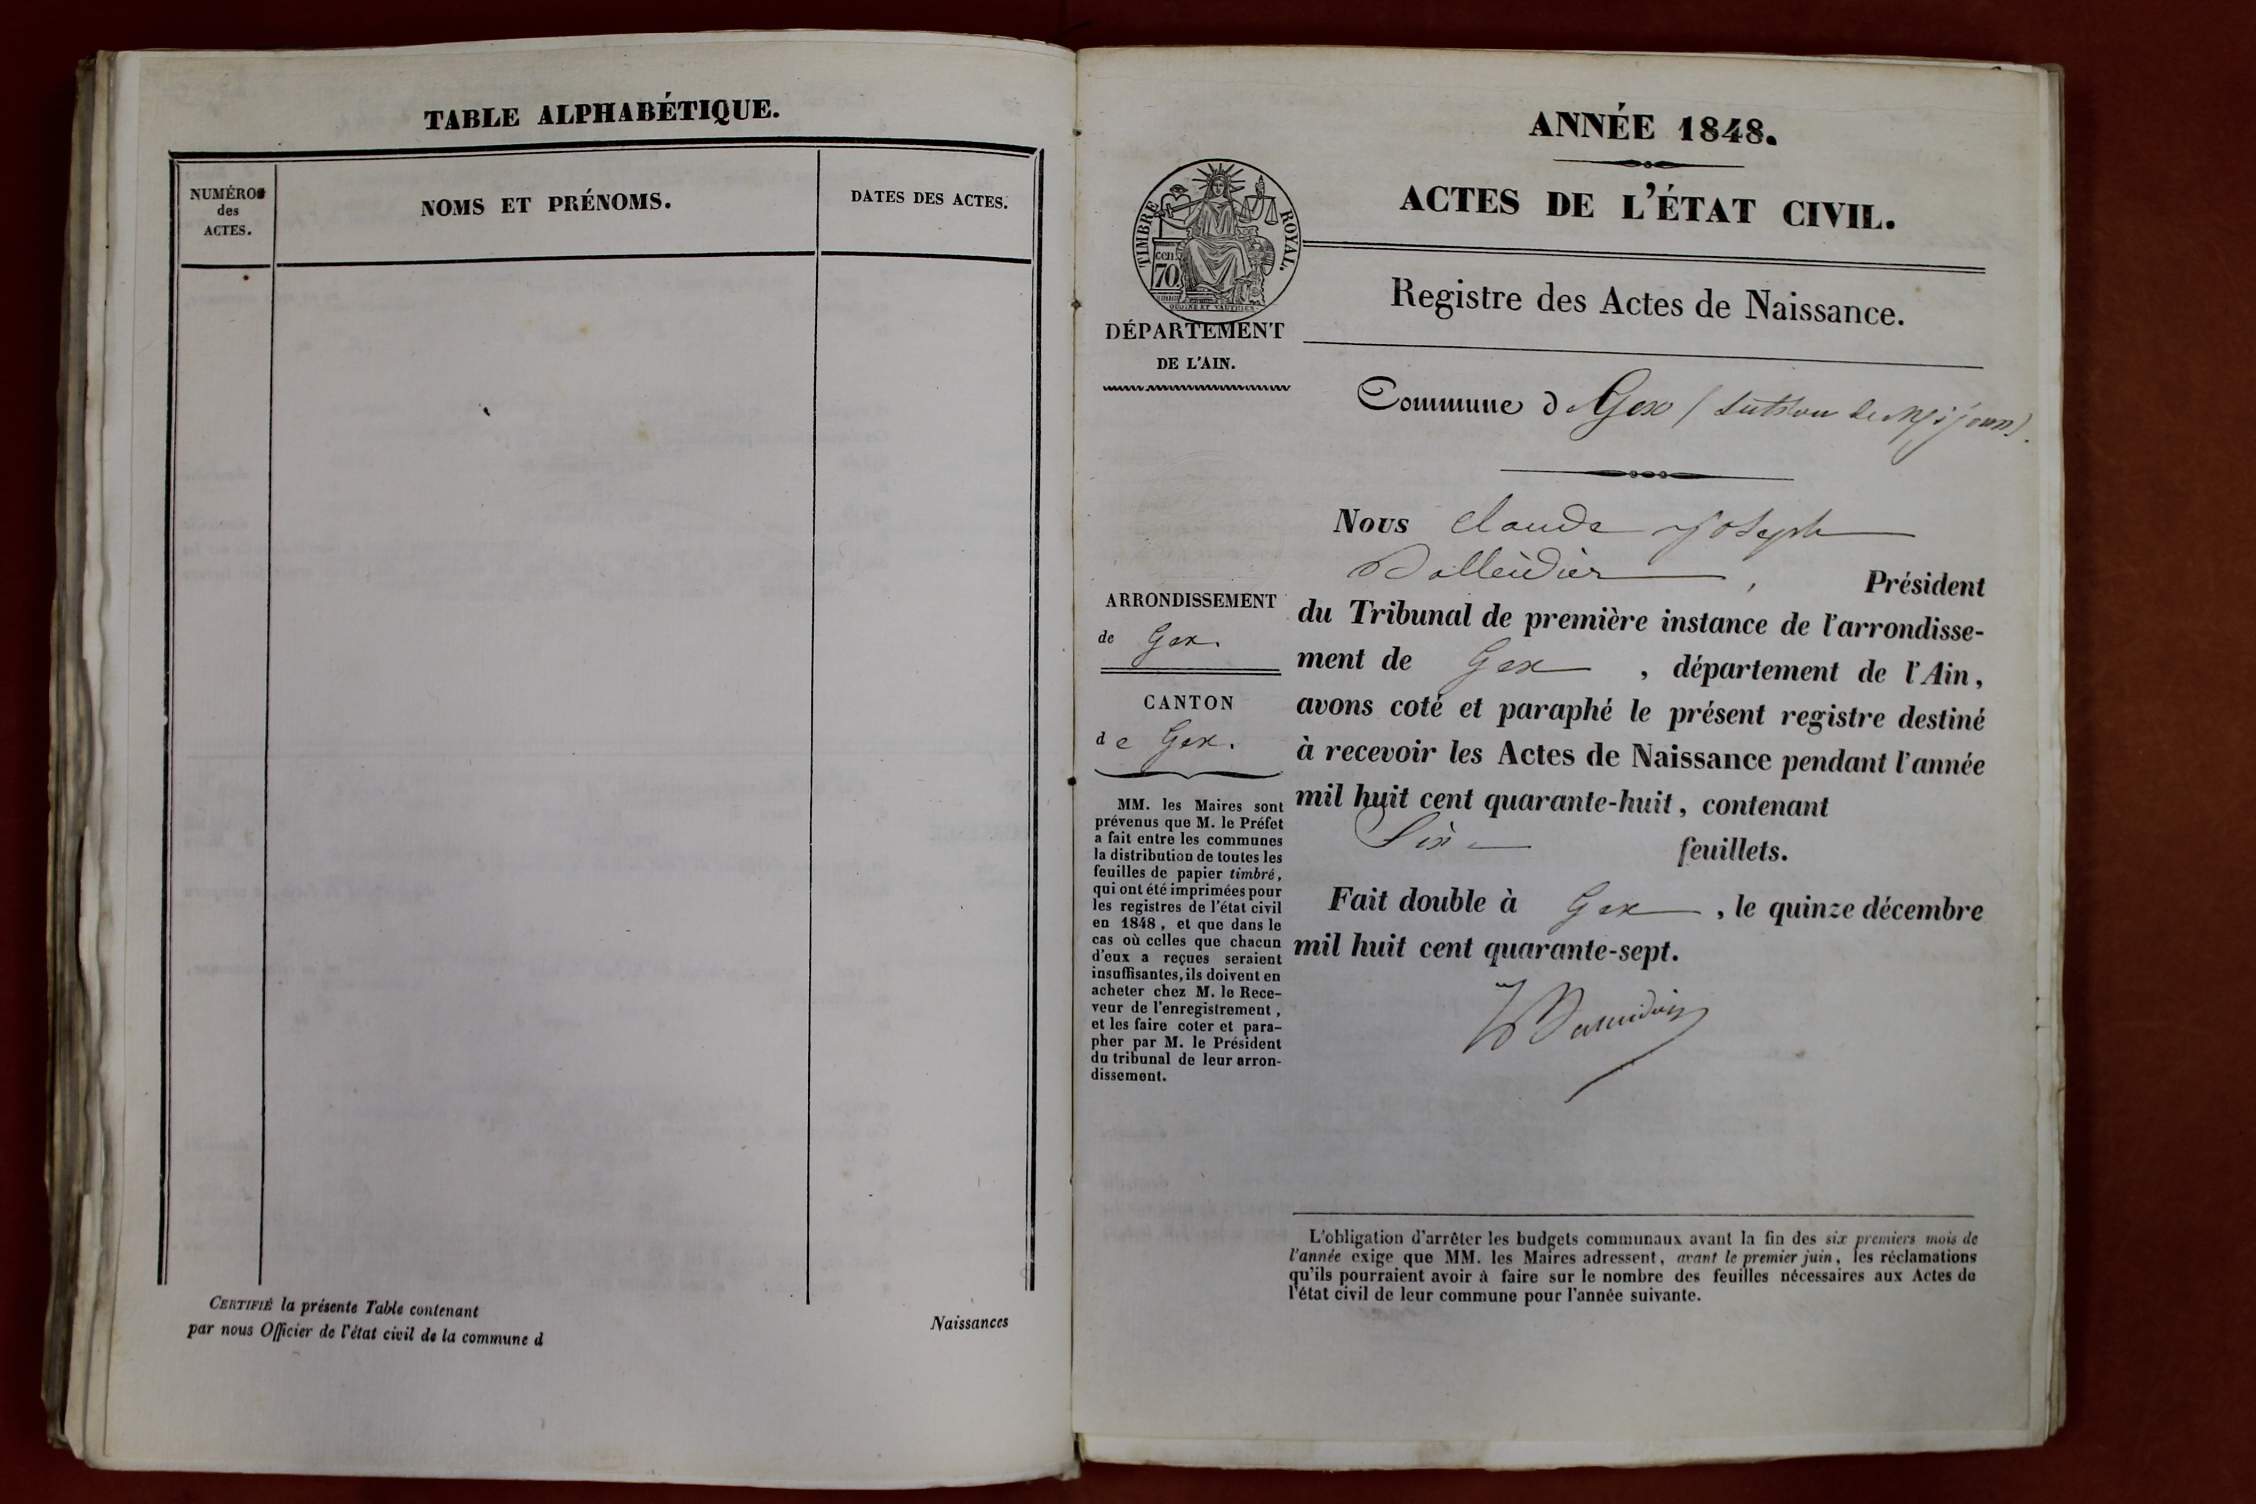 TABLE ALPHABÉTIQUE.
NUMÉROS
des
ACTES.
NOMS ET PRÉNOMS.
DATES DES ACTES.
CERTIFIÉ la présente Table contenant
Naissances
par nous Officier de l'état civil de la commune d
ANNÉE 1848.
ACTES DE L'ÉTAT CIVIL.
TIMBRE ROYAL.
cen
70
DÉPARTEMENT
DE L'AIN.
Registre des Actes de Naissance.
Commune d Gex
ARRONDISSEMENT
de Gex.
CANTON
de Gex.
MM. les Maires sont
prévenus que M. le Préfet
a fait entre les communes
la distribution de toutes les
feuilles de papier timbré,
qui ont été imprimées pour
les registres de l'état civil
en 1848, et que dans le
cas où celles que chacun
d'eux a reçues seraient
insuffisantes, ils doivent en
acheter chez M. le Rece-
veur de l'enregistrement,
et les faire coter et para-
pher par M. le Président
du tribunal de leur arron-
dissement.
Nous Claude Joseph
, Président
du Tribunal de première instance de l'arrondisse-
ment de Gex , département de l'Ain,
avons coté et paraphé le présent registre destiné
à recevoir les Actes de Naissance pendant l'année
mil huit cent quarante-huit, contenant
Six feuillets.
Fait double à Gex , le quinze décembre
mil huit cent quarante-sept.
L'obligation d'arrêter les budgets communaux avant la fin des six premiers mois de
l'année exige que MM. les Maires adressent, avant le premier juin, les réclamations
qu'ils pourraient avoir à faire sur le nombre des feuilles nécessaires aux Actes de
l'état civil de leur commune pour l'année suivante.